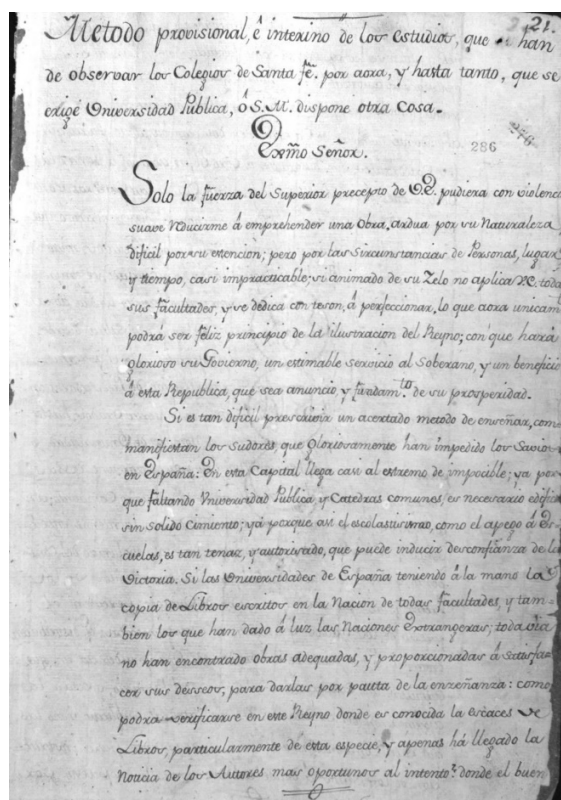 21.
Metodo provisional, è interino de los estudios, que han
de observar los Colegios de Santa fé. por aora, y hasta tanto, que se
erige Universidad Publica, ó S. M. dispone otra cosa.
Exmõ Señor.
286
276
Solo la fuerza del Superior precepto de V.E. pudiera con violenc
suave reducirme á emprehender una Obra, ardua por su Naturaleza
dificil por su extencion; pero por las Sircunstancias de Personas, lugar
y tiempo, casi impracticable; si animado de su Zelo no aplica V.E. toda
sus facultades, y se dedica con teson, á perfeccionar, lo que aora unicam
podrá ser feliz principio de la ilustracion del Reyno; con que hará
glorioso su Govierno, un estimable servicio al Soberano, y un benefici
á esta Republica, que sea anuncio, y fundam.to de su prosperidad.
Si es tan dificil prescrivir un acertado metodo de enseñar, como
manifiestan los sudores, que gloriosamente han impedido los Savios
en España: En esta Capital llega casi al estremo de impocible; ya por
que faltando Universidad Publica, y Catedras comunes, es necesario edific
sin solido Cimiento; yá porque asi el escolasticismo, como el apego á Es
cuelas, es tan tenaz, y autorisado, que puede inducir desconfianza de la
Victoria. Si las Universidades de España teniendo á la mano la
copia de Libros escritos en la Nacion de todas facultades, y tam
bien los que han dado á luz las Naciones Extrangeras; todavia
no han encontrado obras adequadas, y proporcionadas á satisfa
cer sus desseos, para darlas por pauta de la enzeñanza: como
podrá verificarse en este Reyno donde es conocida la escaces de
Libros, particularmente de esta especie, y apenas há llegado la
Noticia de los Autores mas oportunos al intento? donde el buen